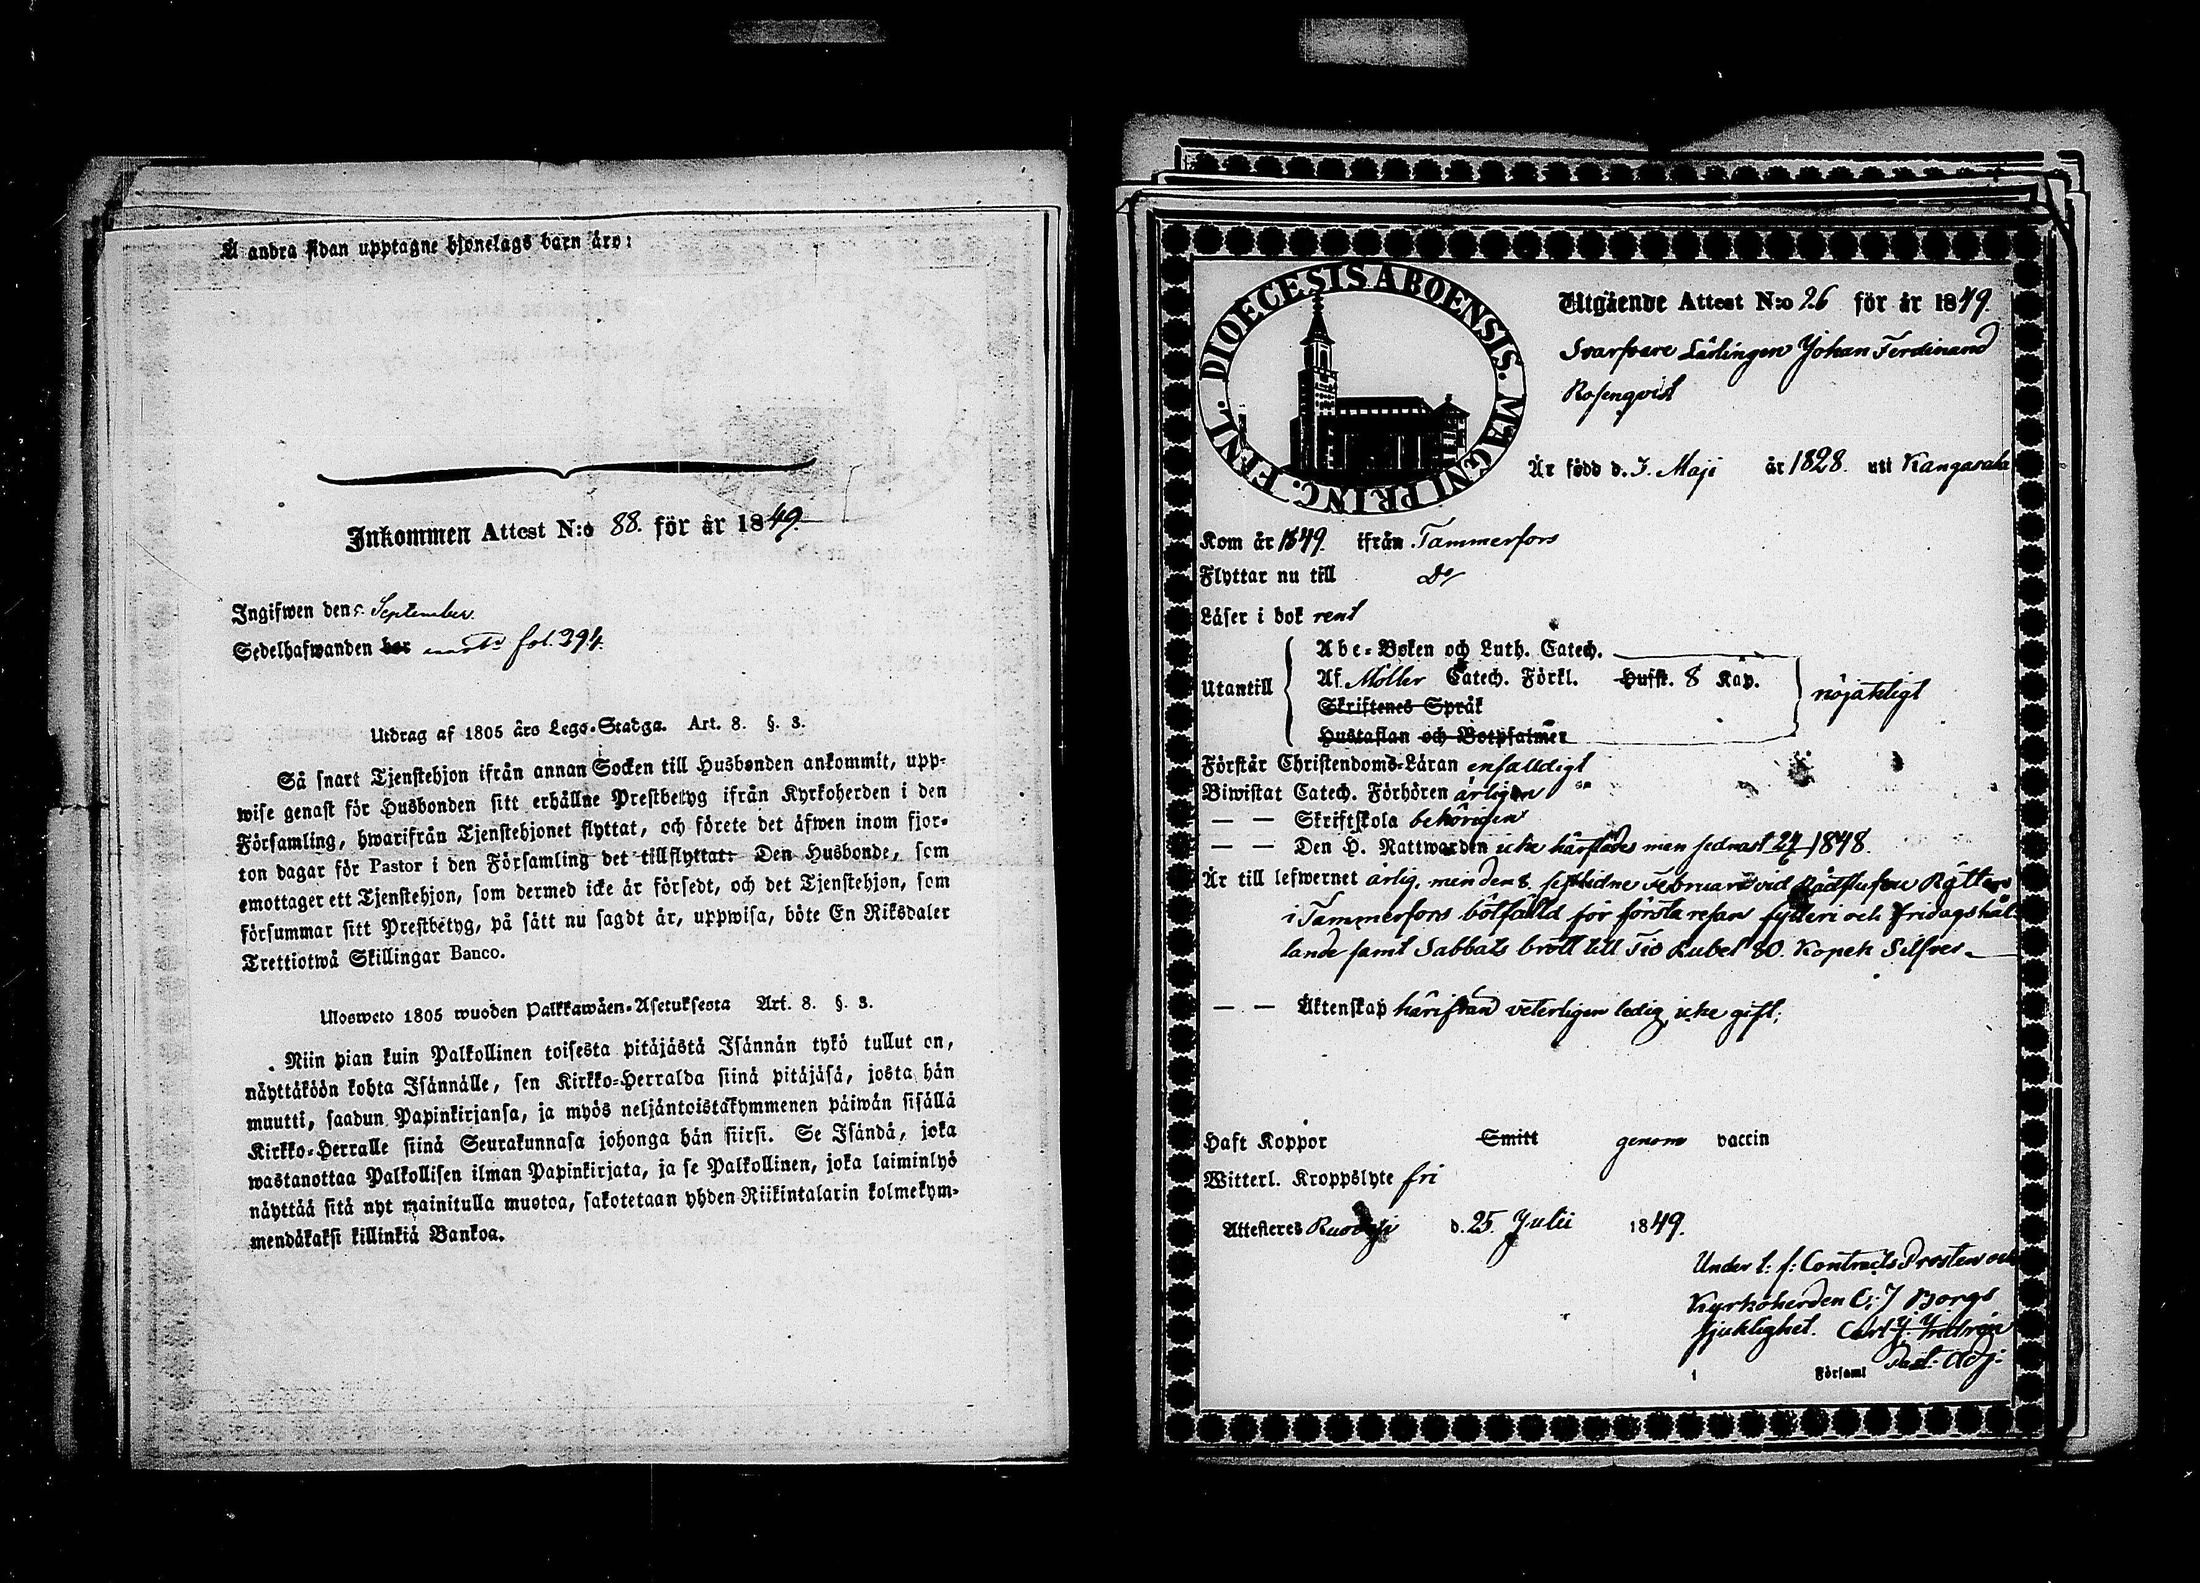 Å andra sidan upptagne hjonelags barn äro:
Inkommen Attest N:o 88. för år 1849.
Ingifwen den 5 September.
Sedelhafwanden bor fol. 394.
Utdrag af 1805 års Lego-Stadga. Art. 8. §. 3.
Så snart Tjenstehjon ifrån annan Socken till Husbonden ankommit, upp-
wise genast för Husbonden sitt erhållne Prestbetyg ifrån Kyrkoherden i den
Församling, hwarifrån Tjenstehjonet flyttat, och förete det äfwen inom fjor-
ton dagar för Pastor i den Församling det tillflyttat: Den Husbonde, som
emottager ett Tjenstehjon, som dermed icke är försedt, och det Tjenstehjon, som
försummar sitt Prestbetyg, på sätt nu sagdt är, uppwisa, böte En Riksdaler
Trettiotwå Skillingar Banco.
Ulosweto 1805 wuoden Palkkawäen-Asetuksesta Art. 8. §. 3.
Niin pian kuin Palkollinen toisesta pitäjästä Isännän tykö tullut on,
näyttäköön kohta Isännälle, sen Kirkko-Herralda siinä pitäjäsä, josta hän
muutti, saadun Papinkirjansa, ja myös neljäntoistakymmenen päiwän sisällä
Kirkko-Herralle siinä Seurakunnasa johonga hän siirsi. Se Isändä, joka
wastanottaa Palkollisen ilman Papinkirjata, ja se Palkollinen, joka laiminlyö
näyttää sitä nyt mainitulla muotoa, sakotetaan yhden Riikintalarin kolmekym-
mendäkaksi killinkiä Bankoa.
DIOECESIS ABOENSIS. MAGNI PRINC. FINL.
Utgående Attest N:o 26 för år 1849.
Svarfvare Lärlingen Johan Ferdinand
Rosenqvist
Är född d. 3. Maji år 1828. uti Kangasala
Kom år 1849. ifrån Tammerfors
Flyttar nu till Do
Läser i bok rent
Abc-Boken och Luth. Catech.
Utantill Af Möller Catech. Förkl. Husst. 8 Kap. nöjaktigt
Skriftenes Språk
Hustaflan och Botpsalmer
Förstår Christendoms-Läran enfalldigt
Biwistat Catech. Förhören årligen
— — Skriftskola behörigen
— — Den H. Nattwarden icke härstädes men sednast 1848.
Är till lefwernet ärlig, men den 8. sistlidne Februari vid Rådstufvu Rätten
i Tammerfors bötfälld för första resan fylleri och fridagshål
lande samt Sabbats brott till Tio Rubel 80. Kopek Silfver.
— — Äktenskap härifrån veterligen ledig, icke gift.
Haft Koppor Smitt genom vaccin
Witterl. Kroppslyte fri
Attesteres Ruovesi d. 25. Julii 1849.
Under t: f: Contracts Prosten och
Kyrkoherden C: J Borgs
sjuklighet. Carl
Past: Adj:
i Församl